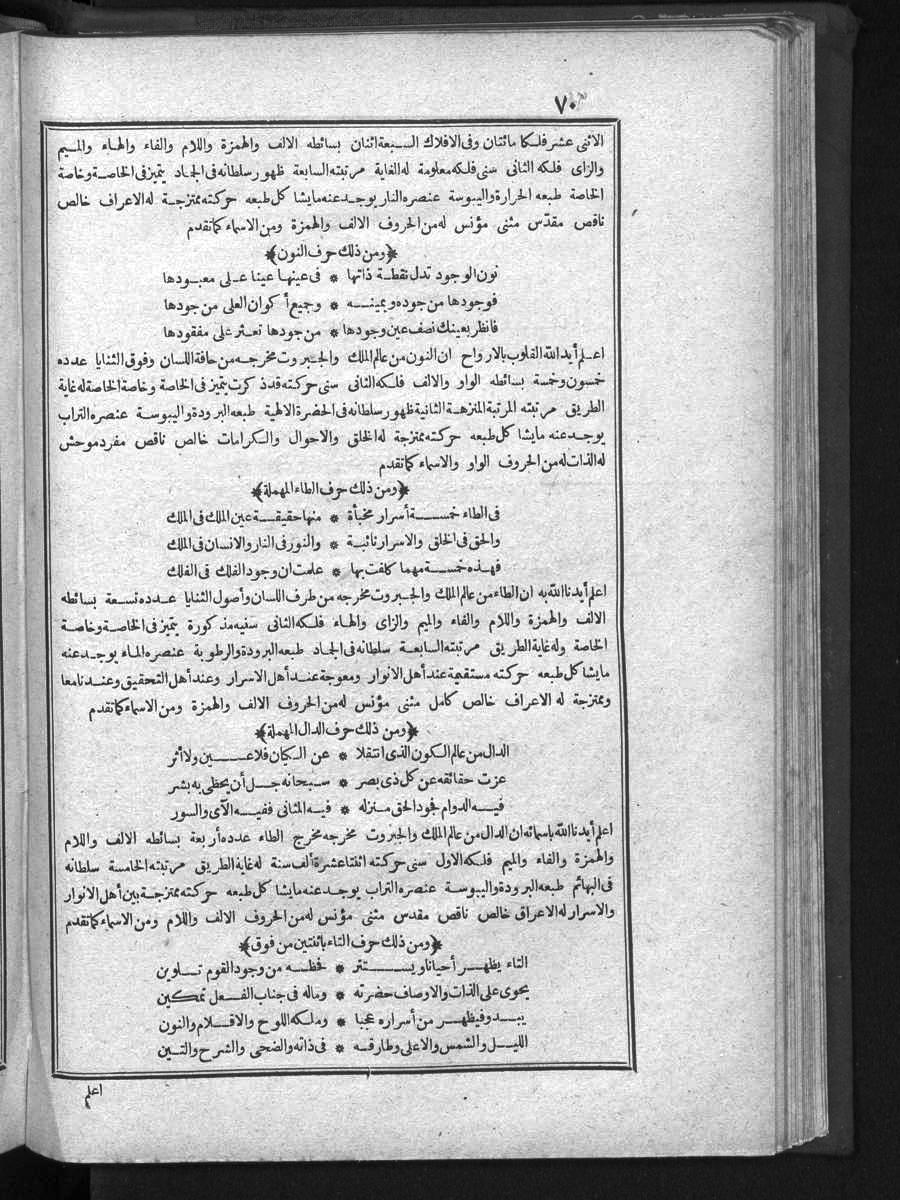 ٧٠
الاثنى عشر فلكا مائتان وفى الافلاك السبعة اثنان بسائطه الالف والهمزة واللام والفاء والهاء والميم
والزاى فلكه الثانى سنى فلكه معلومة له الغاية مرتبته السابعة ظهور سلطانه فى الجماد يتميز فى الخاصة وخاصة
الخاصة طبعه الحرارة واليبوسة عنصره النار يوجد عنه ما يشاكل طبعه حركته ممتزجة له الاعراف خالص
ناقص مقدّس مثنى مؤنس له من الحروف الالف والهمزة ومن الاسماء كما تقدم
﴿ومن ذلك حرف النون﴾
نون الوجود تدل نقطة ذاتها * فى عينها عينا على معبودها
فوجودها من جوده ويمينه * وجميع أكوان العلى من جودها
فانظر بعينك نصف عين وجودها * من جودها تعثر على مفقودها
اعلم أيد الله القلوب بالارواح ان النون من عالم الملك والجبروت مخرجه من حافة اللسان وفوق الثنايا عدده
خمسون وخمسة بسائطه الواو والالف فلكه الثانى سنى حركته قد ذكرت يتميز فى الخاصة وخاصة الخاصة له غاية
الطريق مرتبته المرتبة المنزهة الثانية ظهور سلطانه فى الحضرة الالهية طبعه البرودة واليبوسة عنصره التراب
يوجد عنه ما يشاكل طبعه حركته ممتزجة له الخلق والاحوال والكرامات خالص ناقص مفرد موحش
له الذات له من الحروف الواو والاسماء كما تقدم
﴿ومن ذلك حرف الطاء المهملة﴾
فى الطاء خمسة أسرار مخبأة * منها حقيقة عين الملك فى الملك
والحق فى الخلق والاسرار نائبة * والنور فى النار والانسان فى الملك
فهذه خمسة مهما كلفت بها * علمت ان وجود الفلك فى الفلك
اعلم أيدنا الله به ان الطاء من عالم الملك والجبروت مخرجه من طرف اللسان وأصول الثنايا عدده تسعة بسائطه
الالف والهمزة واللام والفاء والميم والزاى والهاء فلكه الثانى سنيه مذكورة يتميز فى الخاصة وخاصة
الخاصة وله غاية الطريق مرتبته السابعة سلطانه فى الجماد طبعه البرودة والرطوبة عنصره الماء يوجد عنه
ما يشاكل طبعه حركته مستقيمة عند أهل الانوار ومعوجة عند أهل الاسرار وعند أهل التحقيق وعندنا معا
وممتزجة له الاعراف خالص كامل مثنى مؤنس له من الحروف الالف والهمزة ومن الاسماء كما تقدم
﴿ومن ذلك حرف الدال المهملة﴾
الدال من عالم الكون الذى انتقلا * عن الكيان فلا عين ولا أثر
عزت حقائقه عن كل ذى بصر * سبحانه جل أن يحظى به بشر
فيه الدوام فجود الحق منزله * فيه المثانى ففيه الآى والسور
اعلم أيدنا الله باسمائه ان الدال من عالم الملك والجبروت مخرجه مخرج الطاء عدده أربعة بسائطه الالف واللام
والهمزة والفاء والميم فلكه الاول سنى حركته اثنتا عشرة ألف سنة له غاية الطريق مرتبته الخامسة سلطانه
فى البهائم طبعه البرودة واليبوسة عنصره التراب يوجد عنه ما يشاكل طبعه حركته ممتزجة بين أهل الانوار
والاسرار له الاعراق خالص ناقص مقدس مثنى مؤنس له من الحروف الالف واللام ومن الاسماء كما تقدم
﴿ومن ذلك حرف التاء باثنتين من فوق﴾
التاء يظهر أحيانا ويستتر * فحظه من وجود القوم تلوين
يحوى على الذات والاوصاف حضرته * وماله فى جناب الفعل تمكين
يبدو فيظهر من أسراره عجبا * وملكه اللوح والاقلام والنون
الليل والشمس والاعلى وطارقه * فى ذاته والضحى والشرح والتين
اعلم